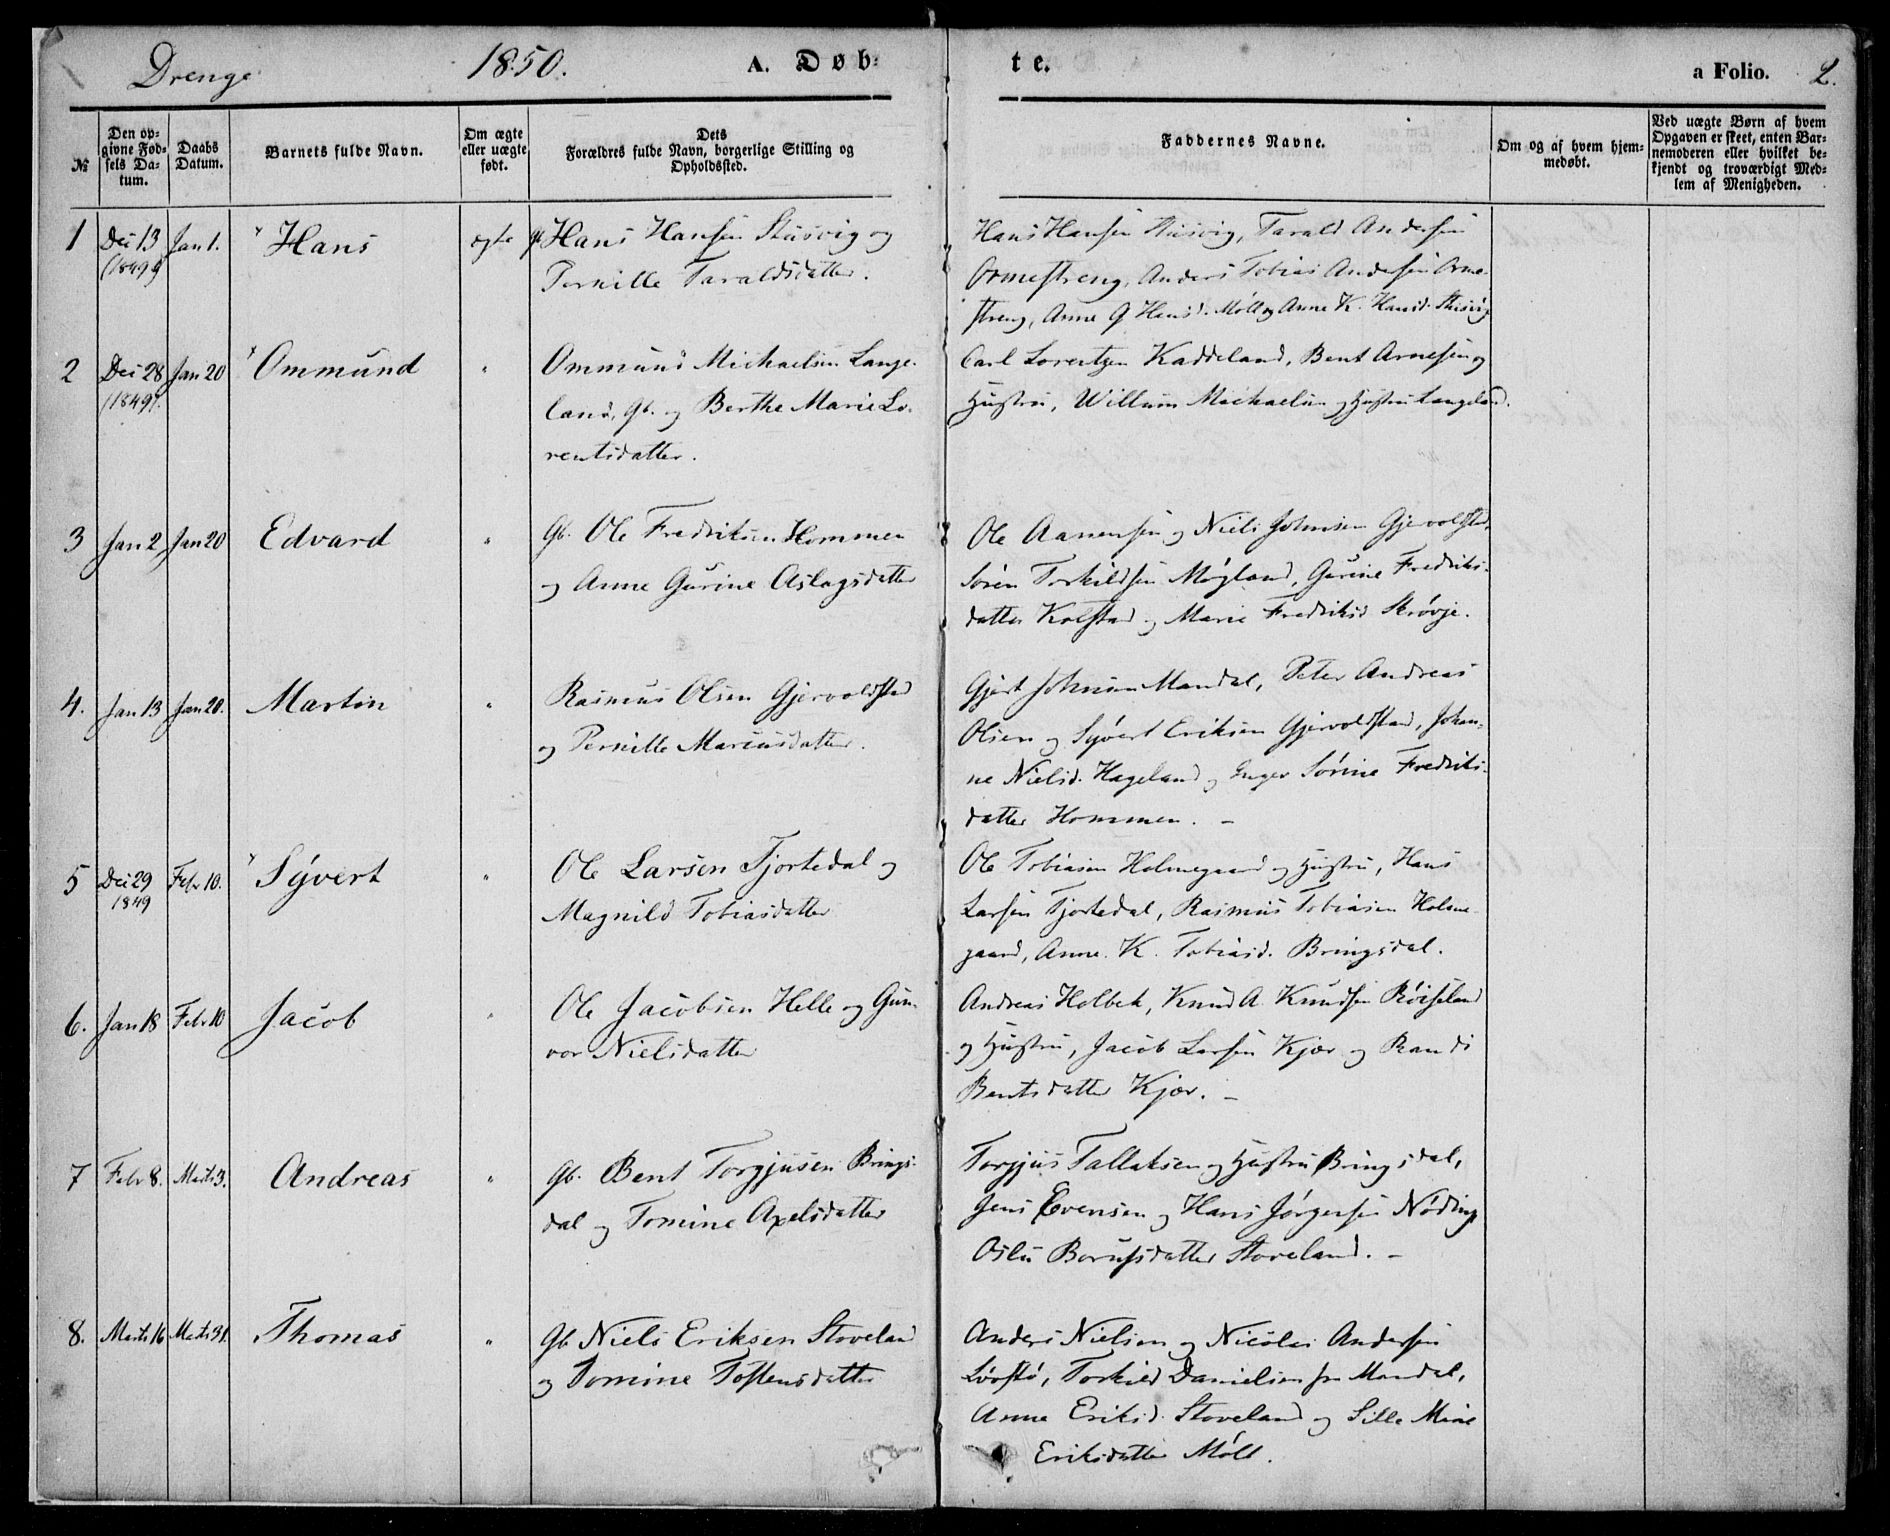 Drenge 1850. A. Døb- te. a Folio. 2.
№ | Den opgivne Fødsels Datum. | Daabs Datum. | Barnets fulde Navn. | Om ægte eller uægte født. | Dets Forældres fulde Navn, borgerlige Stilling og Opholdssted. | Faddernes Navne. | Om og af hvem hjemmedøbt. | Ved uægte Børn af hvem Opgaven er skeet, enten Barnemoderen eller hvilket bekjendt og troværdigt Medlem af Menigheden.
1 Dec 13 (1849) Jan 1. Hans ægte
Hans Hansen Stusvig og
Pernille Taraldsdatter.
Hans Hansen Stusvig, Tarald Andersen
Ormestreng, Anders Tobias Andersen Orme-
streng, Anne G Hansd. Møll og Anne K. Hansd. Stusvig
2 Dec 28 (1849). Jan 20 Ommund "
Ommund Michaelsen Lange-
land, Gb. og Berthe Marie Lo-
rentsdatter.
Carl Lorentzen Kaddeland, Bent Arnesen og
Hustru, Willum Michaelsen og Hustru Langeland.
3 Jan 2 Jan 20 Edvard "
Gb. Ole Fredriksen Hommen
og Anne Gurine Aslagsdatter
Ole Aanensen og Niels Johnsen Gjervolstad,
Søren Torkildsen Møgland, Gurine Fredriks-
datter Kolstad og Marie Fredriksd Skrøvje.
4. Jan 13 Jan 20. Martin "
Rasmus Olsen Gjervoldstad
og Pernille Mariusdatter.
Gjert Johnsen Mandal, Peter Andreas
Olsen og Syvert Eriksen Gjervoldstad, Johan-
ne Nielsd. Hageland og Inger Sørine Fredriks-
datter Hommen. -
5 Dec 29 1849 Febr 10. Syvert "
Ole Larsen Tjortedal og
Magnild Tobiasdatter
Ole Tobiasen Holmegaard og Hustru, Hans
Larsen Tjortedal, Rasmus Tobiasen Holme-
gaard, Anne. K. Tobiasd. Bringsdal.
6. Jan 18 Febr 10 Jacob "
Ole Jacobsen Helle og Gun-
vor Nielsdatter
Andreas Holbek, Knud A. Knudsen Røiseland
og Hustru, Jacob Larsen Kjær og Randi
Bentsdatter Kjær. -
7 Febr 8. Marts 3. Andreas "
Gb. Bent Torgjusen Brings-
dal og Tomine Axelsdatter
Torgjus Tallaksen og Hustru Bringsdal,
Jens Evensen og Hans Jørgensen Nøding
Oslu Borufsdatter Stoveland. -
8. Marts 16 Marts 31. Thomas "
Gb Niels Eriksen Stoveland
og Tomine Tostensdatter
Anders Nielsen og Nicolai Andersen
Torkild Danielsen fra Mandal,
Anna Eriksd. Stoveland og Sille Mine
Eriksdatter Møll.